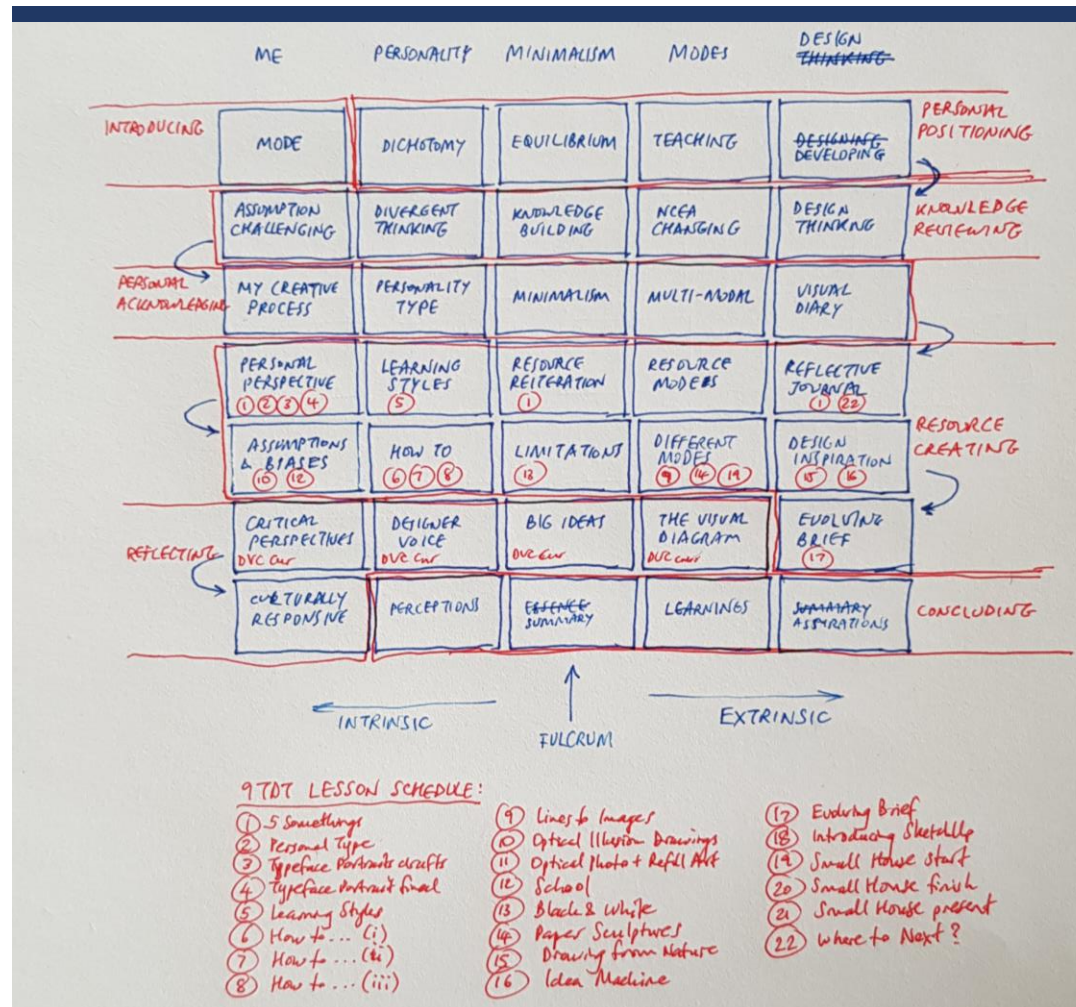 ME PERSONALITY MINIMALISM MODES DESIGN
THINKING
INTRODUCING
MODE DICHOTOMY EQUILIBRIUM TEACHING DESIGNING
DEVELOPING
PERSONAL
POSITIONING
ASSUMPTION
CHALLENGING
DIVERGENT
THINKING
KNOWLEDGE
BUILDING
NCEA
CHANGING
DESIGN
THINKING
KNOWLEDGE
REVIEWING
PERSONAL
ACKNOWLEDGING
MY CREATIVE
PROCESS
PERSONALITY
TYPE
MINIMALISM
MULTI-MODAL
VISUAL
DIARY
PERSONAL
PERSPECTIVE
1 2 3 4
LEARNING
STYLES
5
RESOURCE
REITERATION
1
RESOURCE
MODES
REFLECTIVE
JOURNAL
1 22
ASSUMPTIONS
& BIASES
10 12
HOW TO
6 7 8
LIMITATIONS
13
DIFFERENT
MODES
9 14 19
DESIGN
INSPIRATION
15 16
RESOURCE
CREATING
REFLECTING
CRITICAL
PERSPECTIVES
DVC Cur
DESIGNER
VOICE
DVC Cur
BIG IDEAS
DVC Cur
THE VISUAL
DIAGRAM
DVC Curr
EVOLVING
BRIEF
17
CULTURALLY
RESPONSIVE
PERCEPTIONS
ESSENCE
SUMMARY
LEARNINGS
SUMMARY
ASPIRATIONS
CONCLUDING
INTRINSIC
FULCRUM
EXTRINSIC
9TDT LESSON SCHEDULE:
1 5 Somethings
2 Personal Type
3 Typeface Portraits drafts
4 Typeface Portrait final
5 Learning Styles
6 How to ... (i)
7 How to ... (ii)
8 How to ... (iii)
9 Lines to Images
10 Optical Illusion Drawings
11 Optical Photo + Refill Art
12 School
13 Black & White
14 Paper Sculptures
15 Drawing from Nature
16 Idea Machine
17 Evolving Brief
18 Introducing SketchUp
19 Small House start
20 Small House finish
21 Small House present
22 Where to Next?